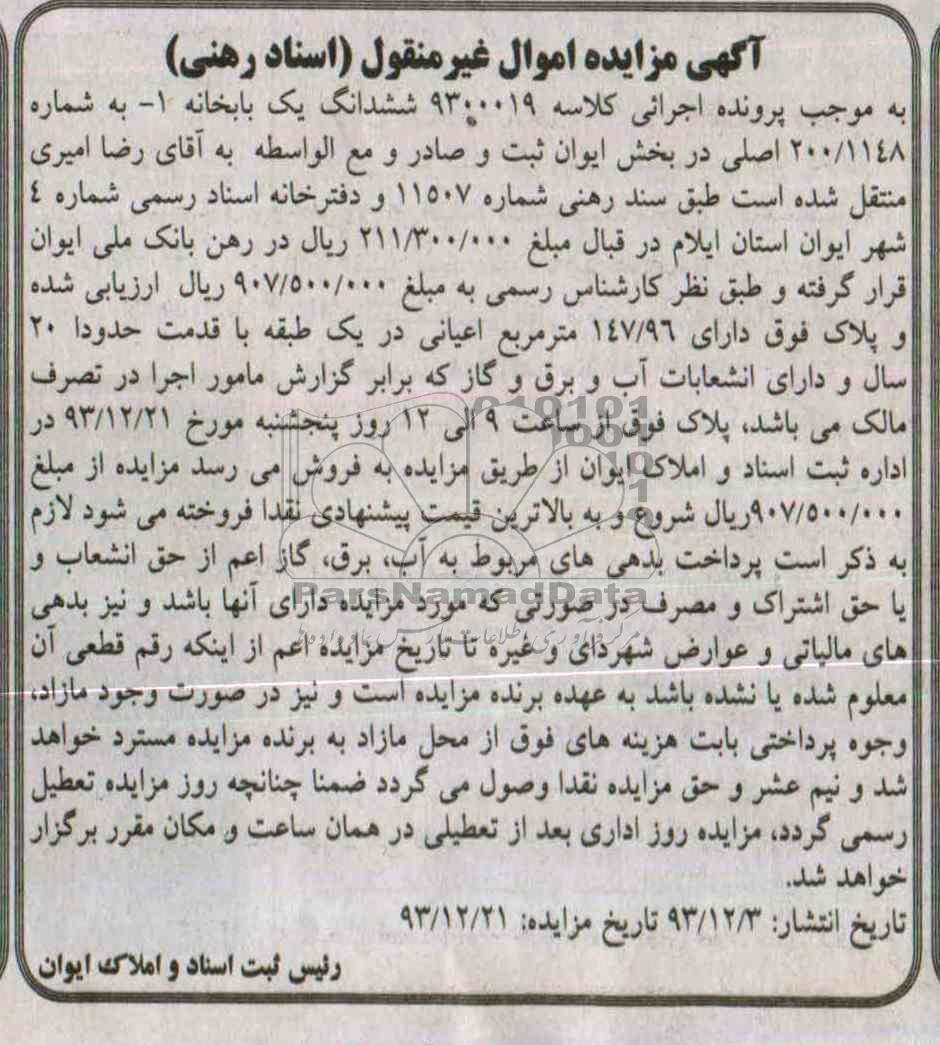 آگهی مزایده اموال غیرمنقول (اسناد رهنی)
به موجب پرونده اجرائی کلاسه ۹۳۰۰۰۱۹ ششدانگ یک بابخانه ۱- به شماره
۲۰۰/۱۱٤۸ اصلی در بخش ایوان ثبت و صادر و مع الواسطه به آقای رضا امیری
منتقل شده است طبق سند رهنی شماره ۱۱۵۰۷ و دفترخانه اسناد رسمی شماره ٤
شهر ایوان استان ایلام در قبال مبلغ ۲۱۱/۳۰۰/۰۰۰ ریال در رهن بانک ملی ایوان
قرار گرفته و طبق نظر کارشناس رسمی به مبلغ ۹۰۷/۵۰۰/۰۰۰ ریال ارزیابی شده
و پلاک فوق دارای ۱٤۷/۹٦ مترمربع اعیانی در یک طبقه با قدمت حدودا ۲۰
سال و دارای انشعابات آب و برق و گاز که برابر گزارش مامور اجرا در تصرف
مالک می باشد، پلاک فوق از ساعت ۹ الی ۱۲ روز پنجشنبه مورخ ۹۳/۱۲/۲۱ در
اداره ثبت اسناد و املاک ایوان از طریق مزایده به فروش می رسد مزایده از مبلغ
۹۰۷/۵۰۰/۰۰۰ریال شروع و به بالاترین قیمت پیشنهادی نقدا فروخته می شود لازم
به ذکر است پرداخت بدهی های مربوط به آب، برق، گاز اعم از حق انشعاب و
یا حق اشتراک و مصرف در صورتی که مورد مزایده دارای آنها باشد و نیز بدهی
های مالیاتی و عوارض شهردای و غیره تا تاریخ مزایده اعم از اینکه رقم قطعی آن
معلوم شده یا نشده باشد به عهده برنده مزایده است و نیز در صورت وجود مازاد،
وجوه پرداختی بابت هزینه های فوق از محل مازاد به برنده مزایده مسترد خواهد
شد و نیم عشر و حق مزایده نقدا وصول می گردد ضمنا چنانچه روز مزایده تعطیل
رسمی گردد، مزایده روز اداری بعد از تعطیلی در همان ساعت و مکان مقرر برگزار
خواهد شد.
تاریخ انتشار: ۹۳/۱۲/۳ تاریخ مزایده: ۹۳/۱۲/۲۱
رئیس ثبت اسناد و املاک ایوان
ParsNamadData